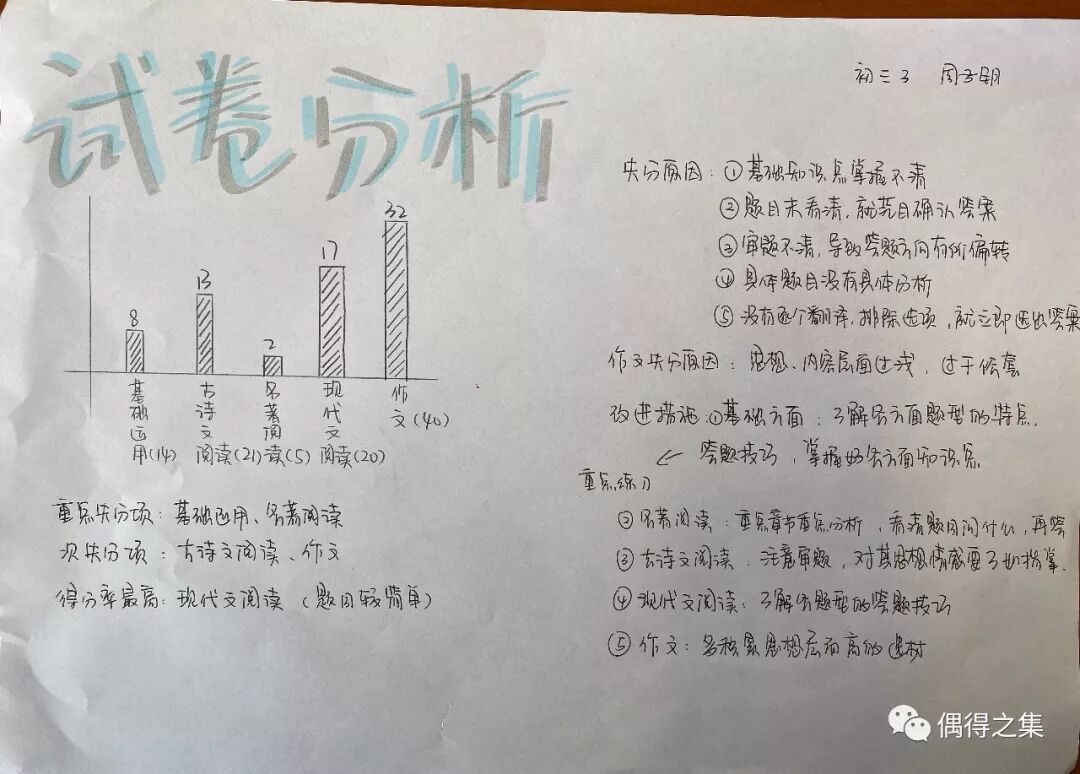 试卷分析
初三3 周子钥
32
17
13
8
2
基础运用(14)
古诗文阅读(21)
名著阅读(5)
现代文阅读(20)
作文(40)
重点失分项：基础运用、名著阅读
次失分项：古诗文阅读、作文
得分率最高：现代文阅读（题目较简单）
失分原因：①基础知识点掌握不清
②题目未看清，就盲目确认答案
③审题不清，导致答题方向有所偏转
④具体题目没有具体分析
⑤没有逐个翻译，排除选项，就立即选出答案
作文失分原因：思想、内容层面过浅，过于俗套
改进措施：①基础方面：了解各方面题型的特点，
← 答题技巧，掌握好各方面知识点
重点练习
②名著阅读：重点章节重点分析，看清题目问什么，再答
③古诗文阅读：注意审题，对其思想情感要了如指掌.
④现代文阅读：了解各题型的答题技巧
⑤作文：多积累思想层面高的选材
偶得之集